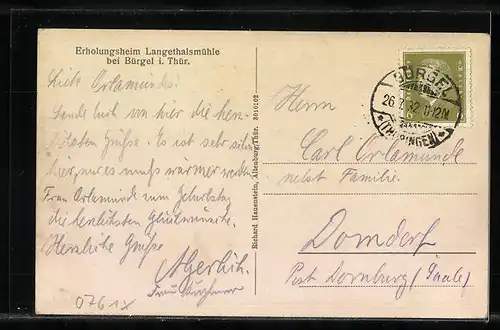 Erholungsheim Langethalsmühle
bei Bürgel i. Thür.
Liebe Orlamünde!
Sende Euch von hier die herz-
lichsten Grüße. Es ist sehr schön
hier, nur es muß wärmer werden.
Frau Orlamünde zum Geburtstag
die herzlichsten Glückwünsche.
Herzliche Grüße
A. Gerlich.
Frau
07619X
Richard Hauenstein, Altenburg/Thür. 3010102
BÜRGEL
26.7.32. 11-12N
*(THÜRINGEN)*
6
Herrn
Carl Orlamünde
nebst Familie.
Dorndorf
Post Dornburg (Saale)